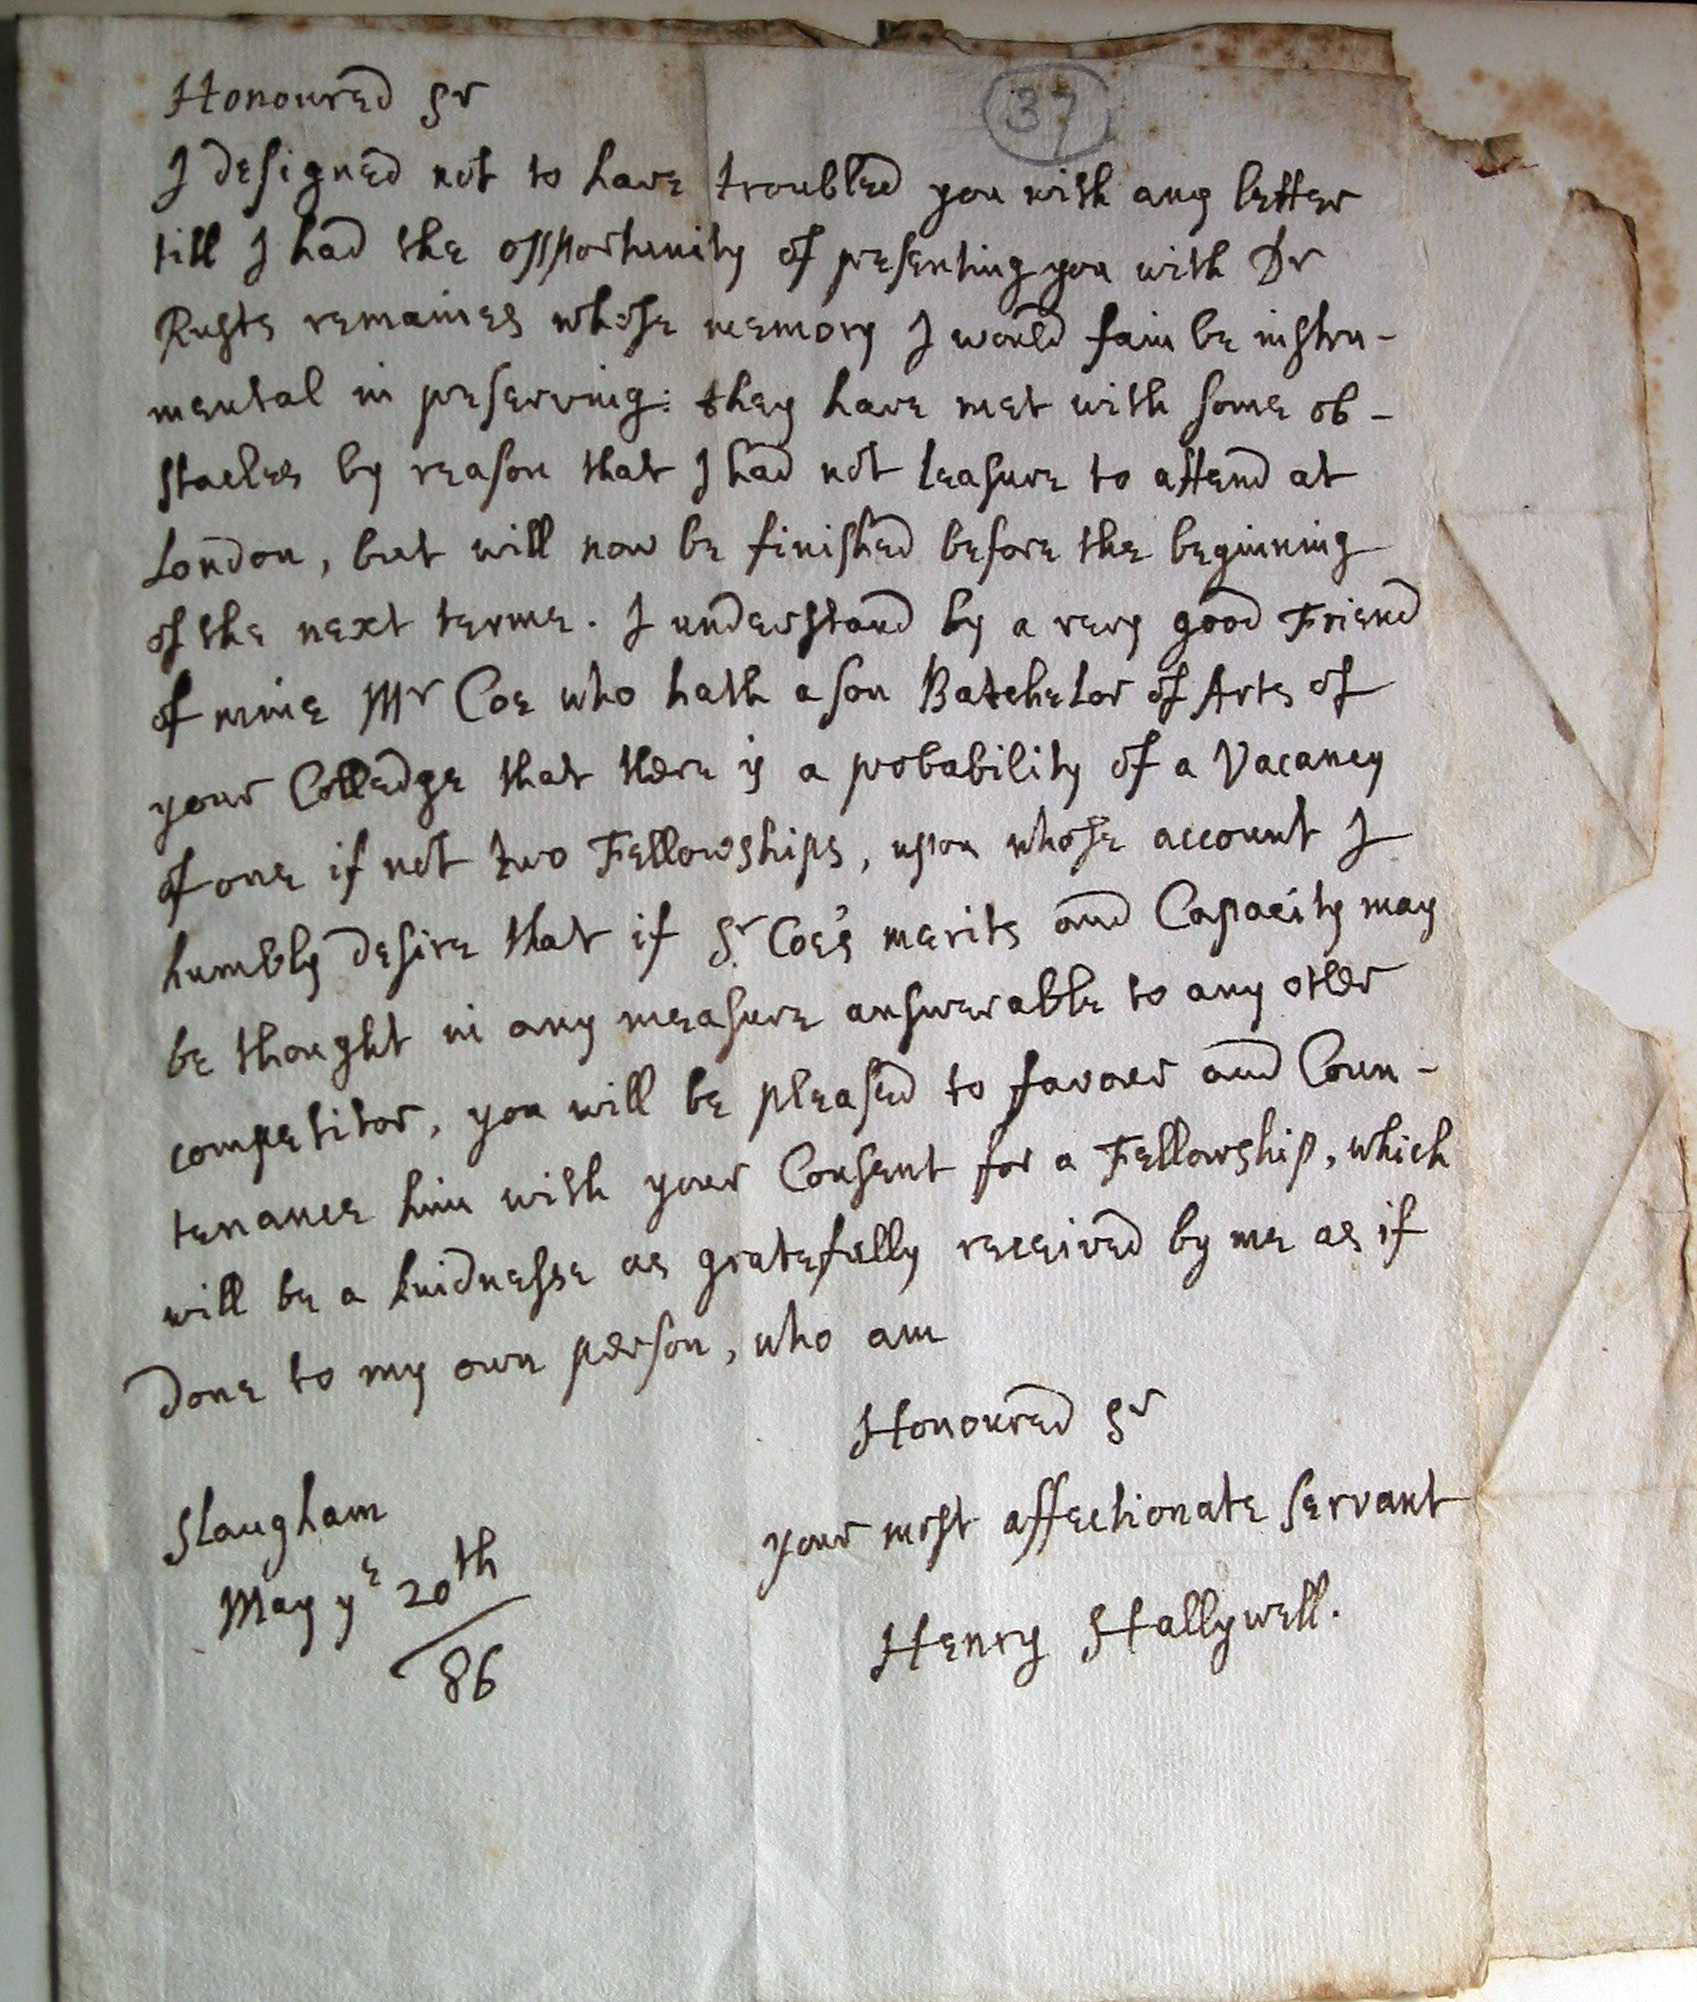 37
Honoured Sr
I designed not to have troubled you with any letter
till I had the opportunity of presenting you with Dr
Rusts remaines whose memory I would fain be instru-
mental in preserving: they have met with some ob-
stacles by reason that I had not leasure to attend at
London, but will now be finished before the beginning
of the next terme. I understand by a very good Friend
of mine Mr Coe who hath a son Batchelor of Arts of
your Colledge that there is a probability of a Vacancy
of one if not two Fellowships, upon whose account I
humbly desire that if Sr Coe's merits and Capacity may
be thought in any measure answerable to any other
competitor, you will be pleased to favour and Coun-
tenance him with your Consent for a Fellowship, which
will be a kindnesse as gratefully received by me as if
done to my own person, who am
Honoured Sr
your most affectionate servant
Henry Hallywell.
Slaugham
May ye 20th
86